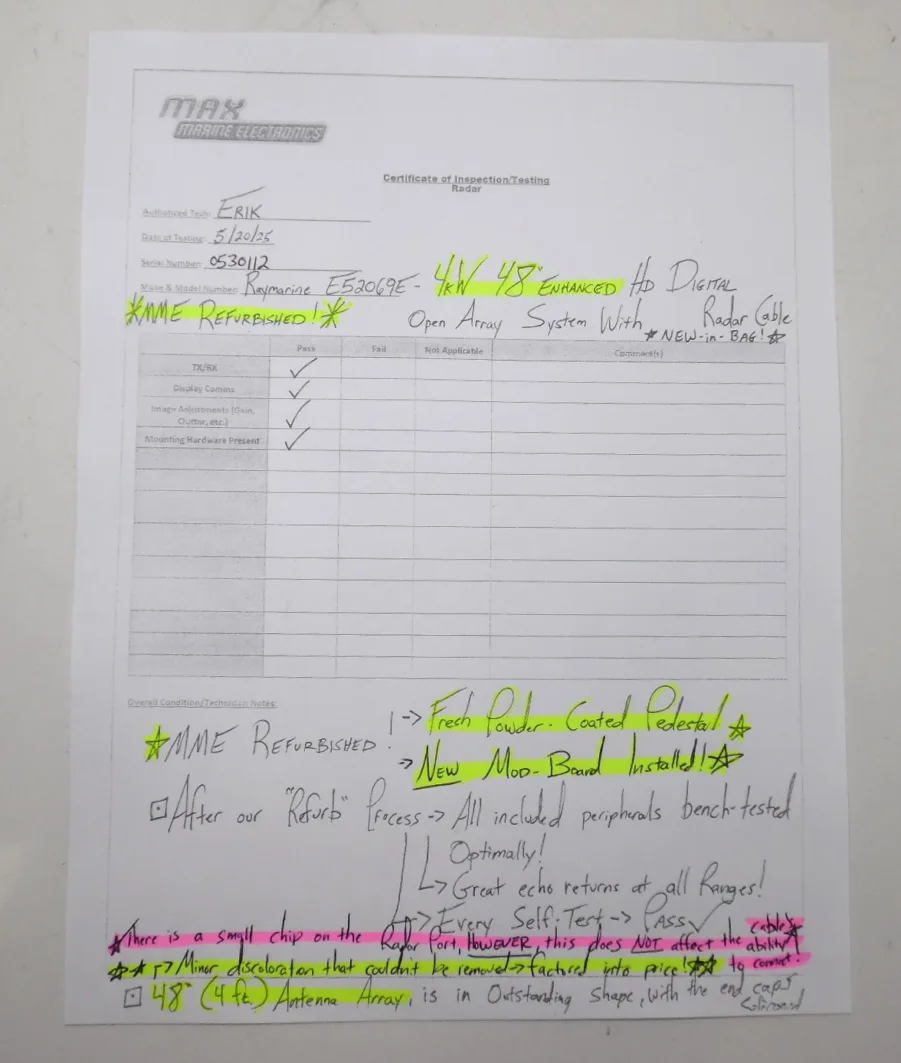 MAX
MARINE ELECTRONICS
Certificate of Inspection/Testing
Radar
Authorized Tech: ERIK
Date of Testing: 5/20/25
Serial Number: 0530112
Make & Model Number: Raymarine E52069E - 4kW 48" ENHANCED HD DIGITAL
*MME REFURBISHED!* Open Array System With Radar Cable
*NEW-in-BAG!*
Pass Fail Not Applicable Comment(s)
TX/RX ✓
Display Comms ✓
Image Adjustments (Gain, Clutter, etc.) ✓
Mounting Hardware Present ✓
Overall Condition/Technician Notes:
*MME REFURBISHED! -> Fresh Powder-Coated Pedestal *
-> NEW Mod-Board Installed! *
After our "Refurb" Process -> All included peripherals bench-tested
Optimally!
-> Great echo returns at all Ranges!
-> Every Self-Test -> PASS ✓
*There is a small chip on the Radar Port, HOWEVER, this does NOT affect the cable's ability to connect!
** -> Minor discoloration that couldn't be removed -> factored into price! **
48" (4 ft.) Antenna Array, is in Outstanding shape, with the end caps